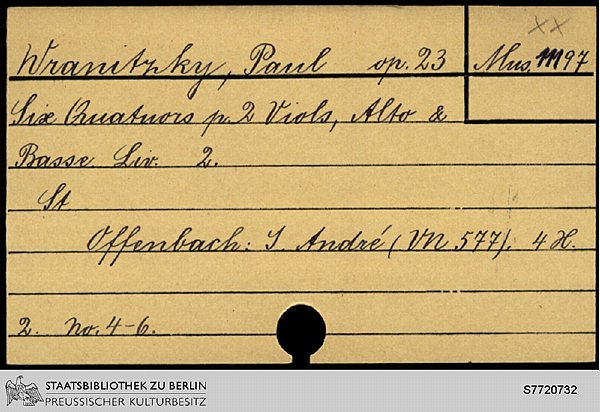 ××
Wranitzky, Paul op. 23 Mus. 11197
Six Quatuors p. 2 Viols, Alto &
Basse. Liv. 2.
St
Offenbach: J. André (VN 577). 4 H.
2. No. 4-6.
STAATSBIBLIOTHEK ZU BERLIN
PREUSSISCHER KULTURBESITZ
S7720732